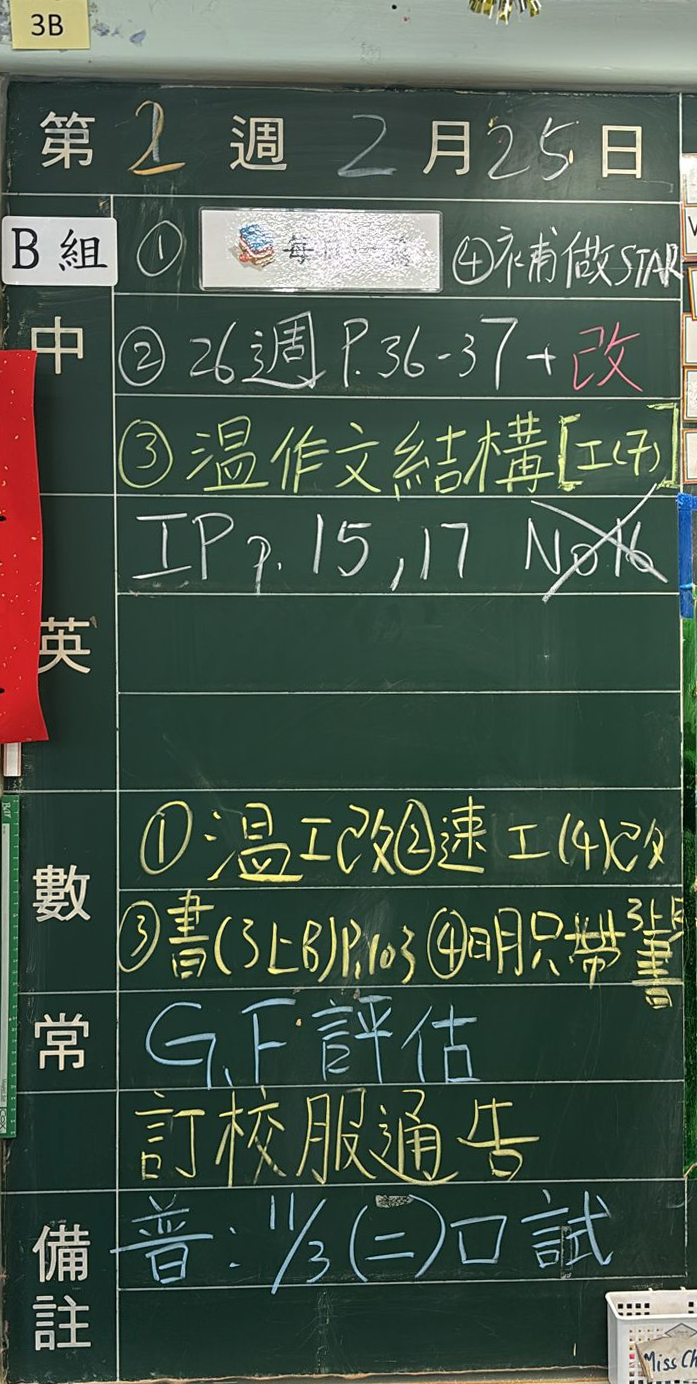 3B
第 1 週 2 月 25 日
B 組 ① 每 一 ④補做STAR
中 ② 26週 P.36-37+改
③ 温作文結構[工(子)]
IP p. 15,17 No16
英
數 ①温工改②速工(4)改
③書(3上B)P.103 ④明只帶3上B書
常 G.F 評估
訂校服通告
備註 普:11/3(二)口試
Miss Ch